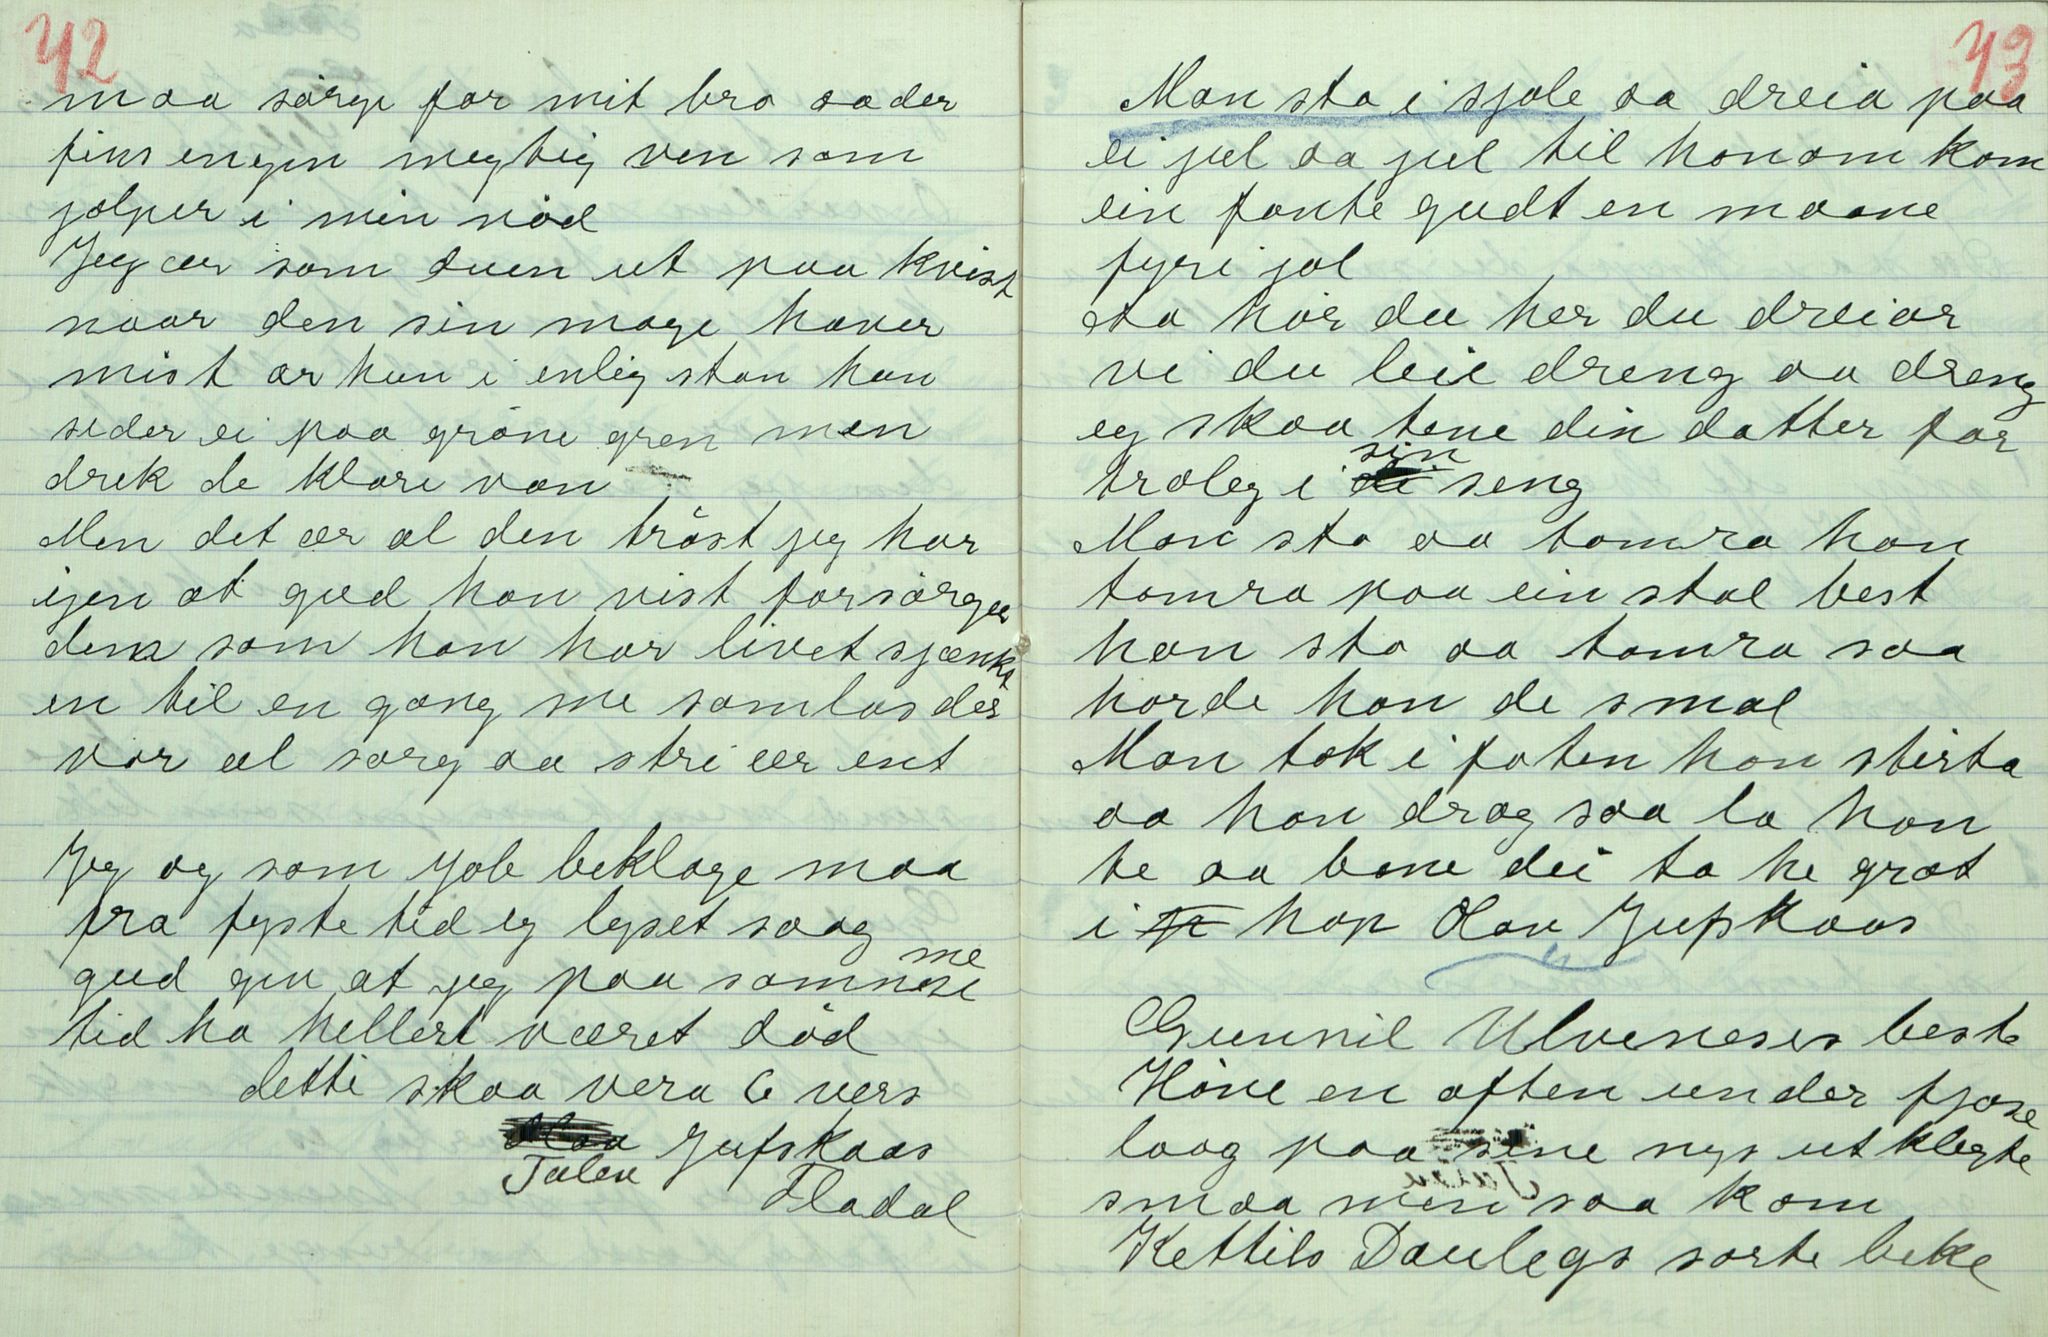 42
maa sørge for mit bra aa der
fins engen megtig ven som
jælper i min nød
Jeg ær som duen ut paa kvist
naar den sin mage haver
mist ær hun i enlig stan hun
seder ei paa grøne gren men
drek de klare van
Men det ær al den trøst jeg har
igen at gud han vist forsørger
dem som han har livet sjænkt
en til en gang me samlas der
vor al sorg aa stri ær ent
Jeg og som Job beklage maa
fra fyste tid eg lyset saag
gud gin at jeg paa samme
tid ha hellert været død
dette skaa vera 6 vers
Jufskaas
Talen
Fladal
43
Man sta i sjole aa dreia paa
ei jul aa jul til honom kom
ein fante gudt en maane
fyri jol
Aa hør du her du dreiar
vi du leie dreng aa dreng
eg skaa tene din datter for
træleg i sin seng
Man sta aa tomra han
tomra paa ein stal best
han sta aa tomra saa
horde han de smal
Man tok i foten han stirta
aa han drog saa la han
te aa bane dei ta he græt
i hop Olav Jufskaas
Gunnil Ulveneses beste
Høne en aften under fjøse
laag paa sine nys utklegte
smaa men saa kom
Kettils Daulegs sorte bekc